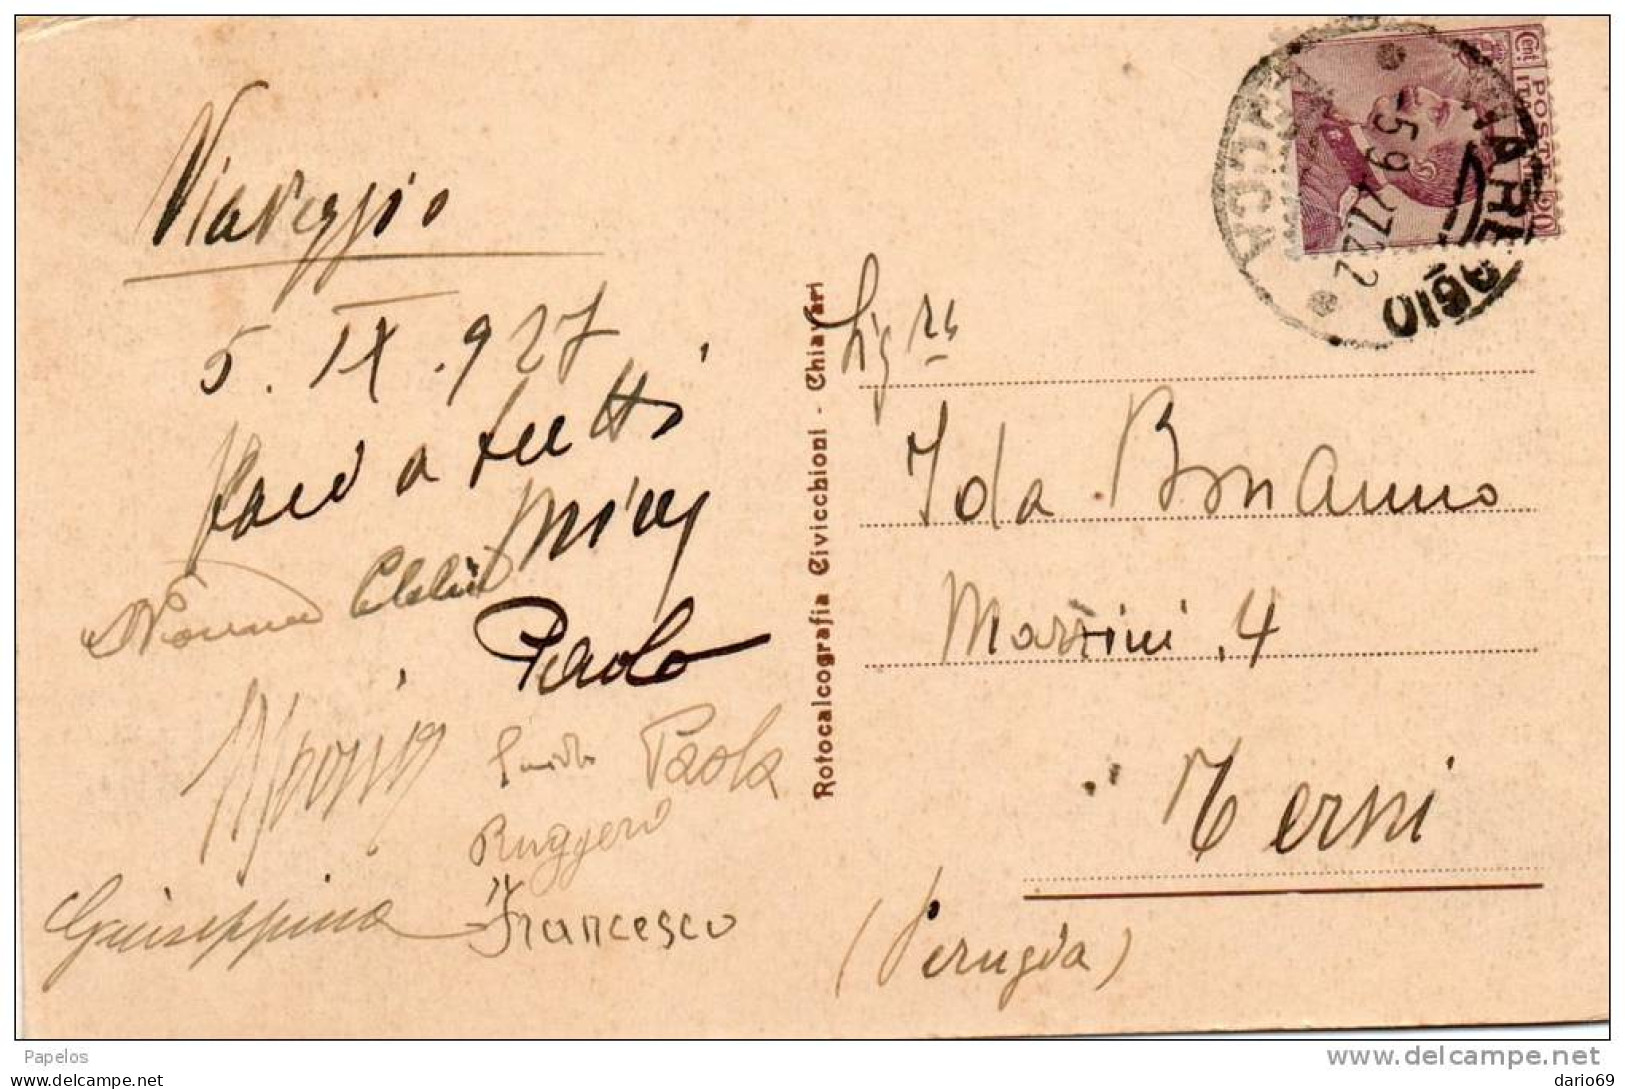 Viareggio
5.IX.927
Baci a tutti
Miey
Nonna Clelia
Paolo
Guido Paola
Ruggero
Giuseppina Francesco
Rotocalcografia Civicchioni - Chiavari
Sig.ra
Ida Bonanno
Mazzini, 4
Terni
(Perugia)
VIAREGGIO
5 9 27 22
LUCCA
Cent. 20
POSTE ITALIANE
Papelos
www.delcampe.net
delcampe.net
dario69